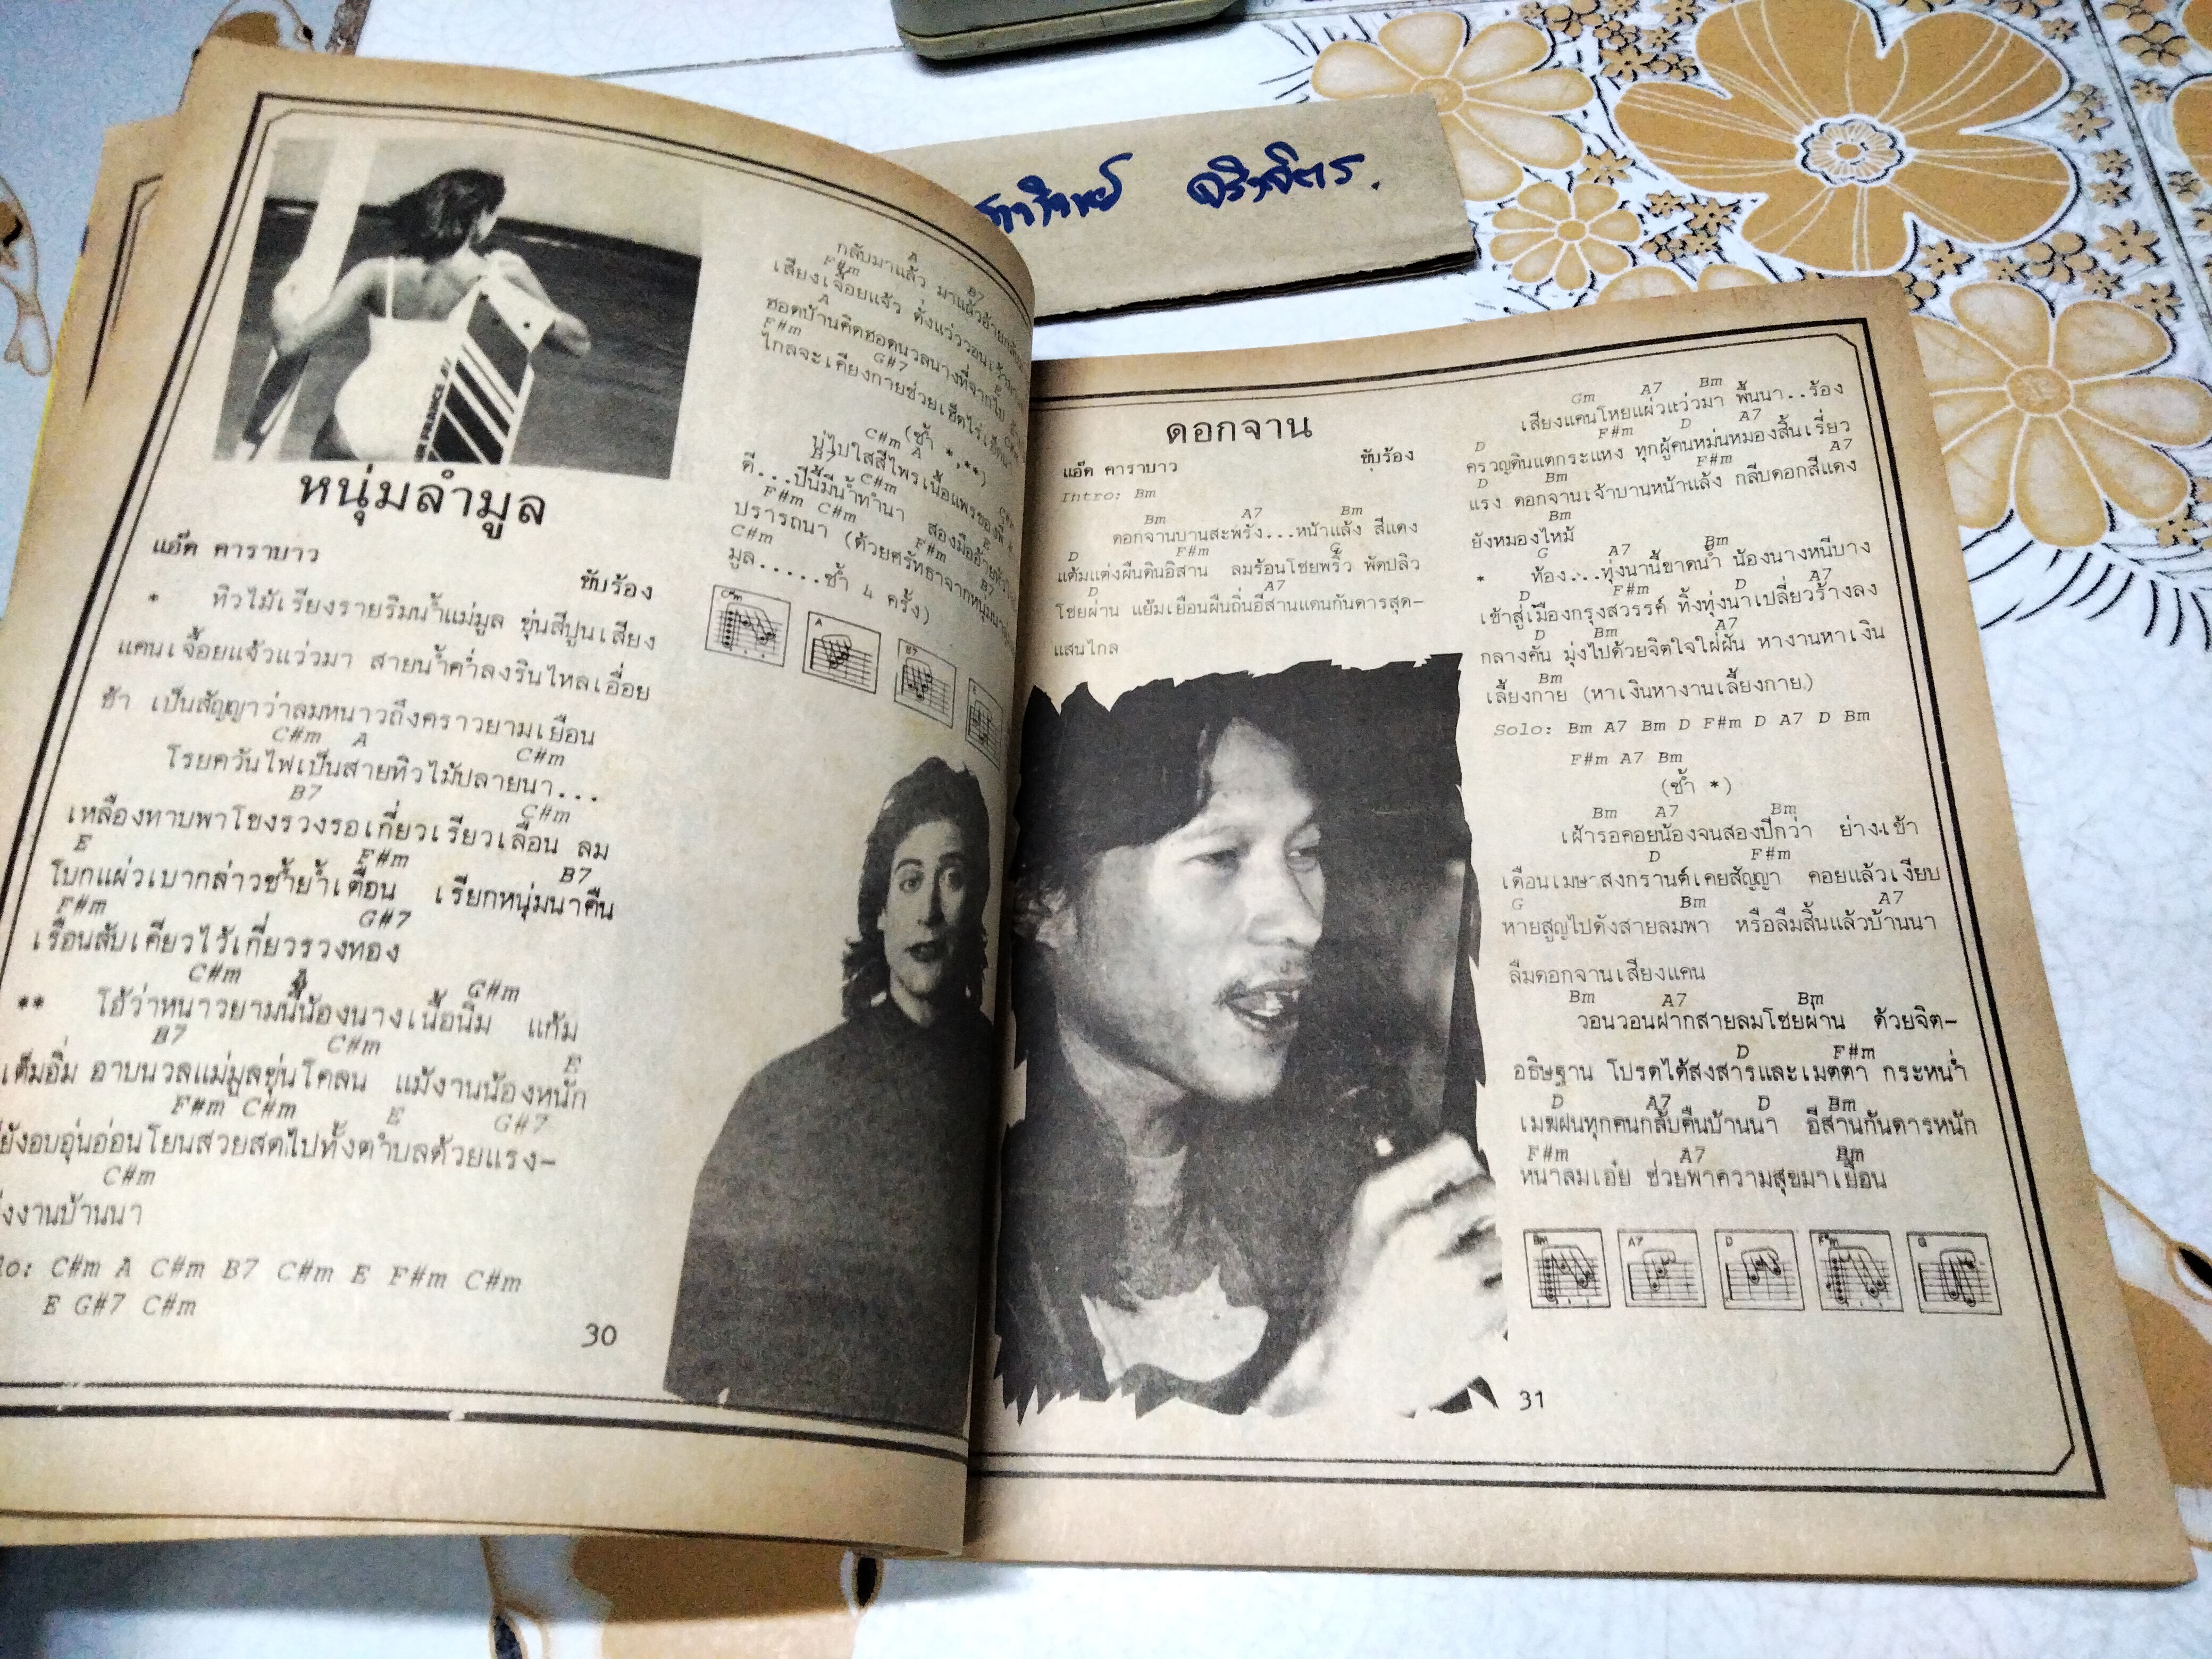 จริงจิตร.
หนุ่มลำมูล
แอ๊ด คาราบาว
ขับร้อง
* ทิวไม้เรียงรายริมน้ำแม่มูล ขุ่นสีปูนเสียง
แคนเจื้อยแจ้วแว่วมา สายน้ำค่ำลงรินไหลเอื่อย
ช้า เป็นสัญญาว่าลมหนาวถึงคราวยามเยือน
C#m A C#m
โรยควันไฟเป็นสายทิวไม้ปลายนา...
B7 C#m
เหลืองทาบพาโขงรวงรอเกี่ยวเรียวเลื่อน ลม
E F#m B7
โบกแผ่วเบากล่าวซ้ำย้ำเตือน เรียกหนุ่มนาคืน
F#m G#7
เรือนลับเคียวไว้เกี่ยวรวงทอง
C#m A C#m
** โอ้ว่าหนาวยามนี้น้องนางเนื้อนิ่ม แก้ม
B7 C#m E
เต็มอิ่ม อาบนวลแม่มูลขุ่นโคลน แม้งานน้องหนัก
F#m C#m E G#7
ยังอบอุ่นอ่อนโยนสวยสดไปทั้งตำบลด้วยแรง-
C#m
งานบ้านนา
C#m A C#m B7 C#m E F#m C#m
E G#7 C#m
30
A
กลับมาแล้ว มาแล้วอ้ายกลับ
F#m B7
เสียงเจื้อยแจ้ว ดั่งแว่ววอน
A
ฮอดบ้านคิดฮอดนวลนางที่จากไป
F#m E
ไกลจะเคียงกายช่วยเฮ็ดไร่
G#7 C#m
(ซ้ำ *,**)
C#m A
นุ่งไปใส่สีไพรเนื้อแพรของพี่
B7 C#m C#m
ดี...ปีนี้มีน้ำทำนา สองมืออ้าย
F#m C#m E
ปรารถนา (ด้วยศรัทธาจากหนุ่มนา
C#m F#m B7
มูล.....ซ้ำ 4 ครั้ง)
C#m A B7 E
ดอกจาน
แอ๊ด คาราบาว ขับร้อง
Intro: Bm
Bm A7 Bm
ดอกจานบานสะพรั่ง...หน้าแล้ง สีแดง
D F#m G
แต้มแต่งผืนดินอิสาน ลมร้อนโชยพริ้ว พัดปลิว
A7
โชยผ่าน แย้มเยือนผืนถิ่นอีสานแดนกันดารสุด-
แสนไกล
Gm A7 Bm
เสียงแคนโหยแผ่วแว่วมา พื้นนา..ร้อง
D F#m D A7
ครวญดินแตกระแหง ทุกผู้คนหม่นหมองสิ้นเรี่ยว
D Bm F#m A7
แรง ดอกจานเจ้าบานหน้าแล้ง กลีบดอกสีแดง
Bm
ยังหมองไหม้
G A7 Bm
* ท้อง...ทุ่งนานี้ขาดน้ำ น้องนางหนีบาง
D F#m D A7
เข้าสู่เมืองกรุงสวรรค์ ทิ้งทุ่งนาเปลี่ยวร้างลง
D Bm A7
กลางคัน มุ่งไปด้วยจิตใจใฝ่ฝัน หางานหาเงิน
Bm
เลี้ยงกาย (หาเงินหางานเลี้ยงกาย)
Solo: Bm A7 Bm D F#m D A7 D Bm
F#m A7 Bm
(ซ้ำ *)
Bm A7 Bm
เฝ้ารอคอยน้องจนสองปีกว่า ย่างเข้า
D F#m
เดือนเมษาสงกรานต์เคยสัญญา คอยแล้วเงียบ
G Bm A7
หายสูญไปดังสายลมพา หรือลืมสิ้นแล้วบ้านนา
ลืมดอกจานเสียงแคน
Bm A7 Bm
วอนวอนฝากสายลมโชยผ่าน ด้วยจิต-
D F#m
อธิษฐาน โปรดได้สงสารและเมตตา กระหน่ำ
D A7 D Bm
เมฆฝนทุกคนกลับคืนบ้านนา อีสานกันดารหนัก
F#m A7 Bm
หนาลมเอ๋ย ช่วยพาความสุขมาเยือน
Bm A7 D F#m G
31